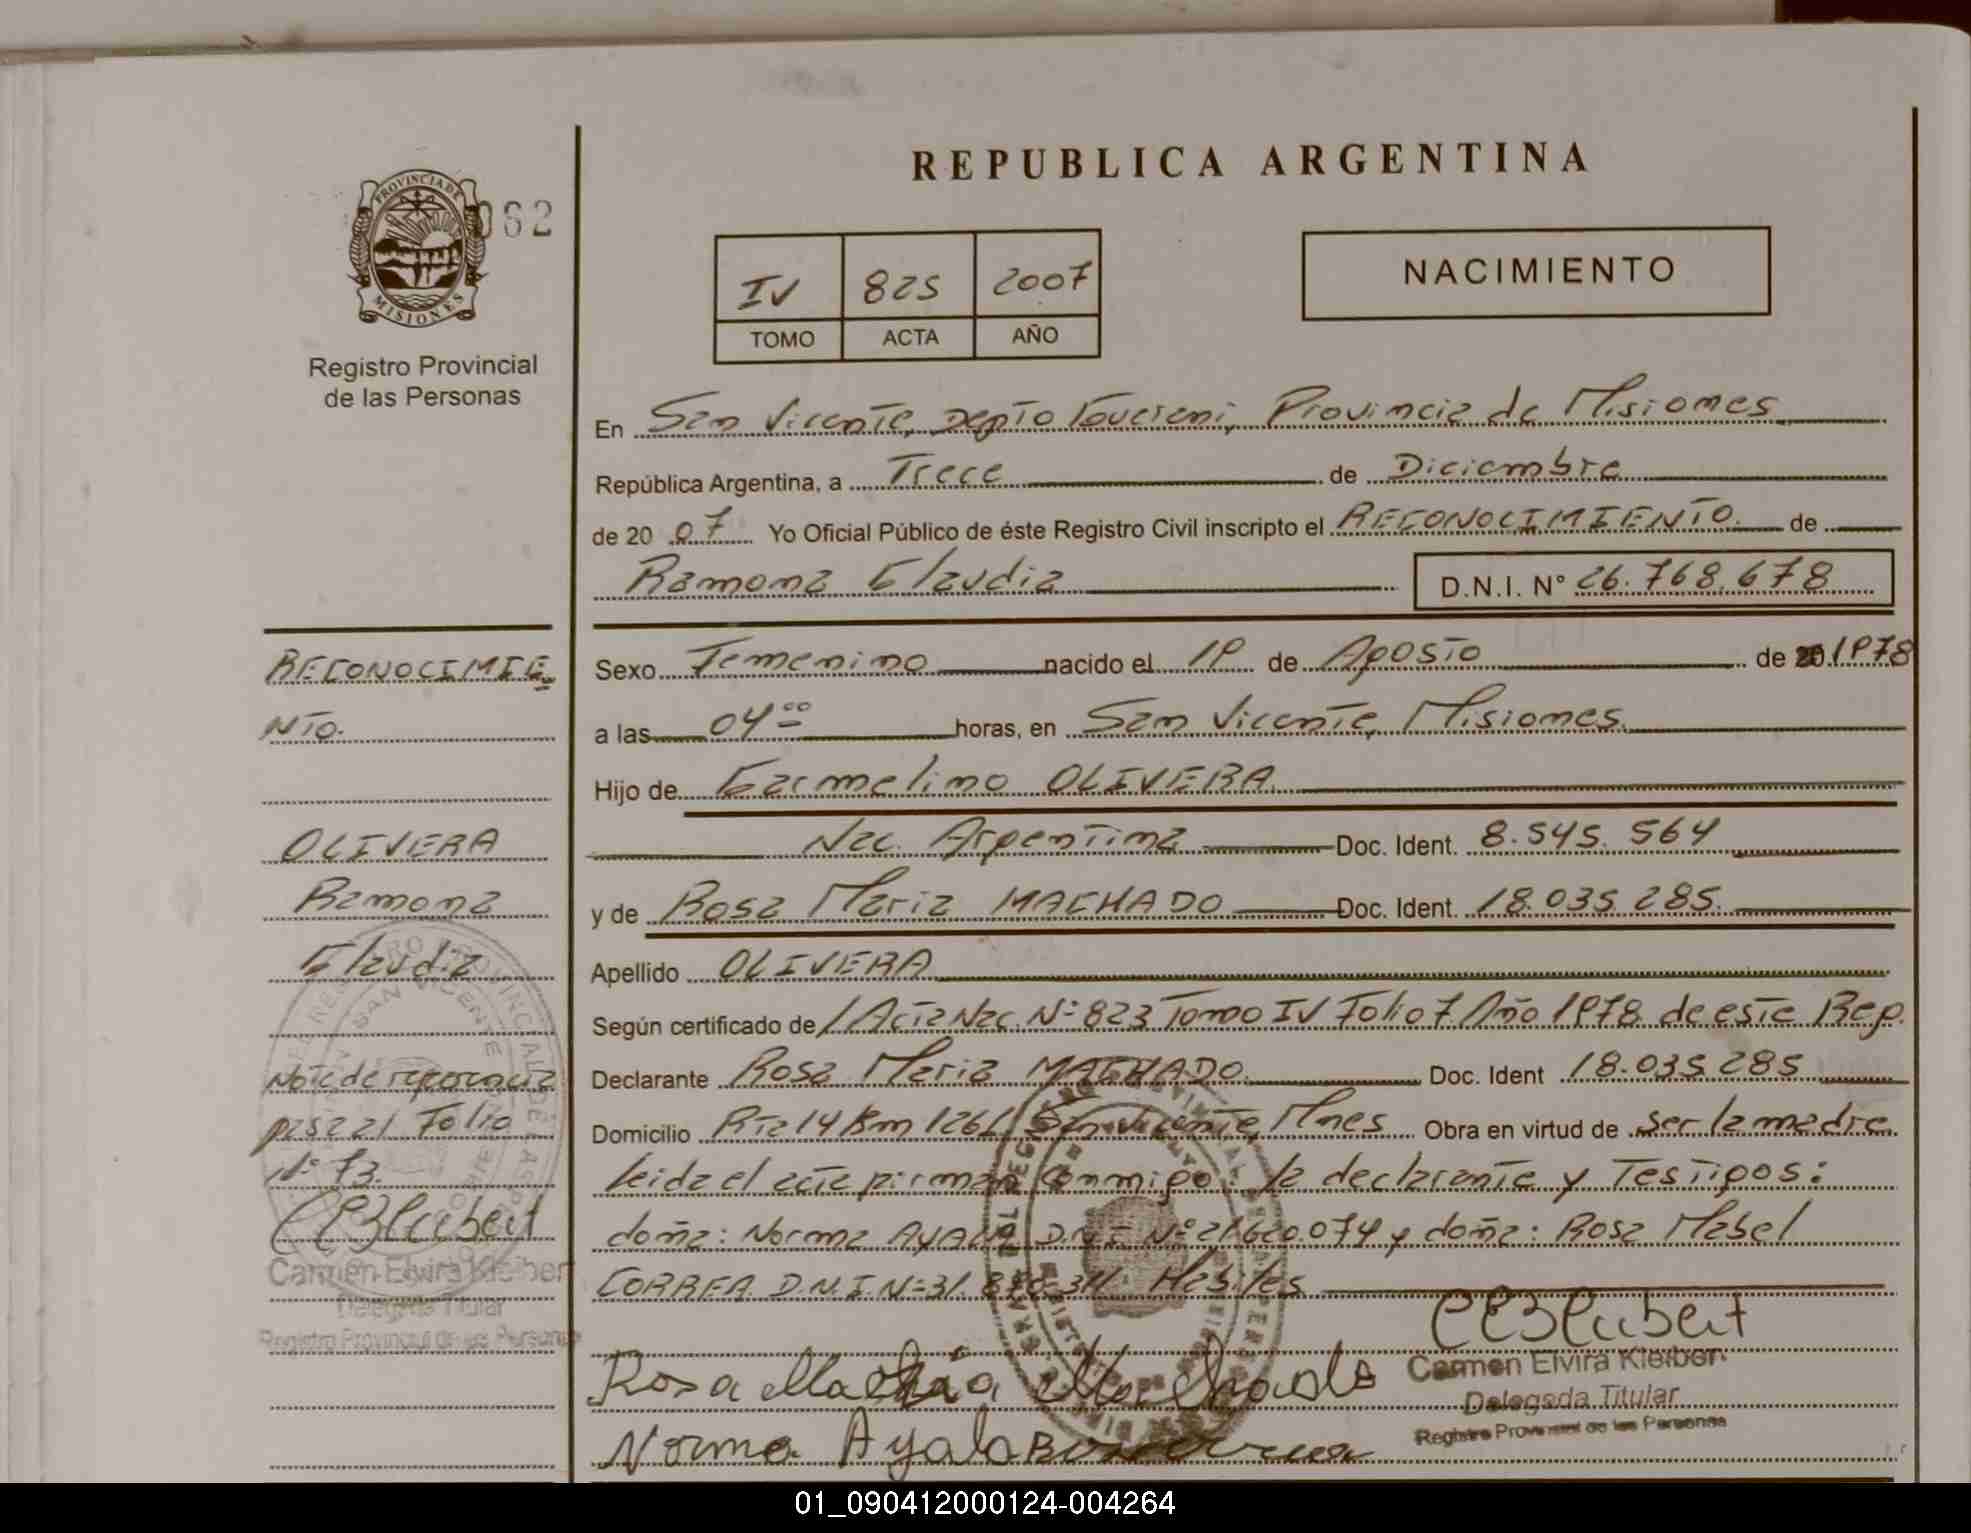 REPUBLICA ARGENTINA
PROVINCIA DE
MISIONES
062
Registro Provincial
de las Personas
IV 825 2007
TOMO ACTA AÑO
NACIMIENTO
En San Vicente, Depto Guarani, Provincia de Misiones
República Argentina, a Trece de Diciembre
de 20 07 Yo Oficial Público de éste Registro Civil inscripto el RECONOCIMIENTO de
Ramona Claudia D.N.I. N° 26.768.678
Sexo Femenino nacido el 19 de Agosto de 1978
a las 04 00 horas, en San Vicente, Misiones
Hijo de Carmelino OLIVERA
Nac. Argentina Doc. Ident. 8.545.564
y de Rosa Maria MACHADO Doc. Ident. 18.035.285.
Apellido OLIVERA
Según certificado de / Acta Nac. Nº 823 Tomo IV Folio 7 Año 1978 de este Reg.
Declarante Rosa Maria MACHADO Doc. Ident 18.035.285
Domicilio Rta 14 Km 1261 San Vicente, Mnes Obra en virtud de ser la madre
Leida el acta firman conmigo: la declarante y Testigos:
doña: Norma AYALA D.N.I. Nº 21.620.074 y doña: Rosa Mabel
CORREA D.N.I. Nº 31. Habiles
Rosa Maria Machado
Norma Ayala
Carmen Elvira Kleibert
Delegada Titular
Registro Provincial de las Personas
RECONOCIMIE
NTO.
OLIVERA
Ramona
Claudia
Nota de referencia
pasa al Folio
Nº 73.
Carmen Elvira Kleibert
Delegada Titular
Registro Provincial de las Personas
01_090412000124-004264